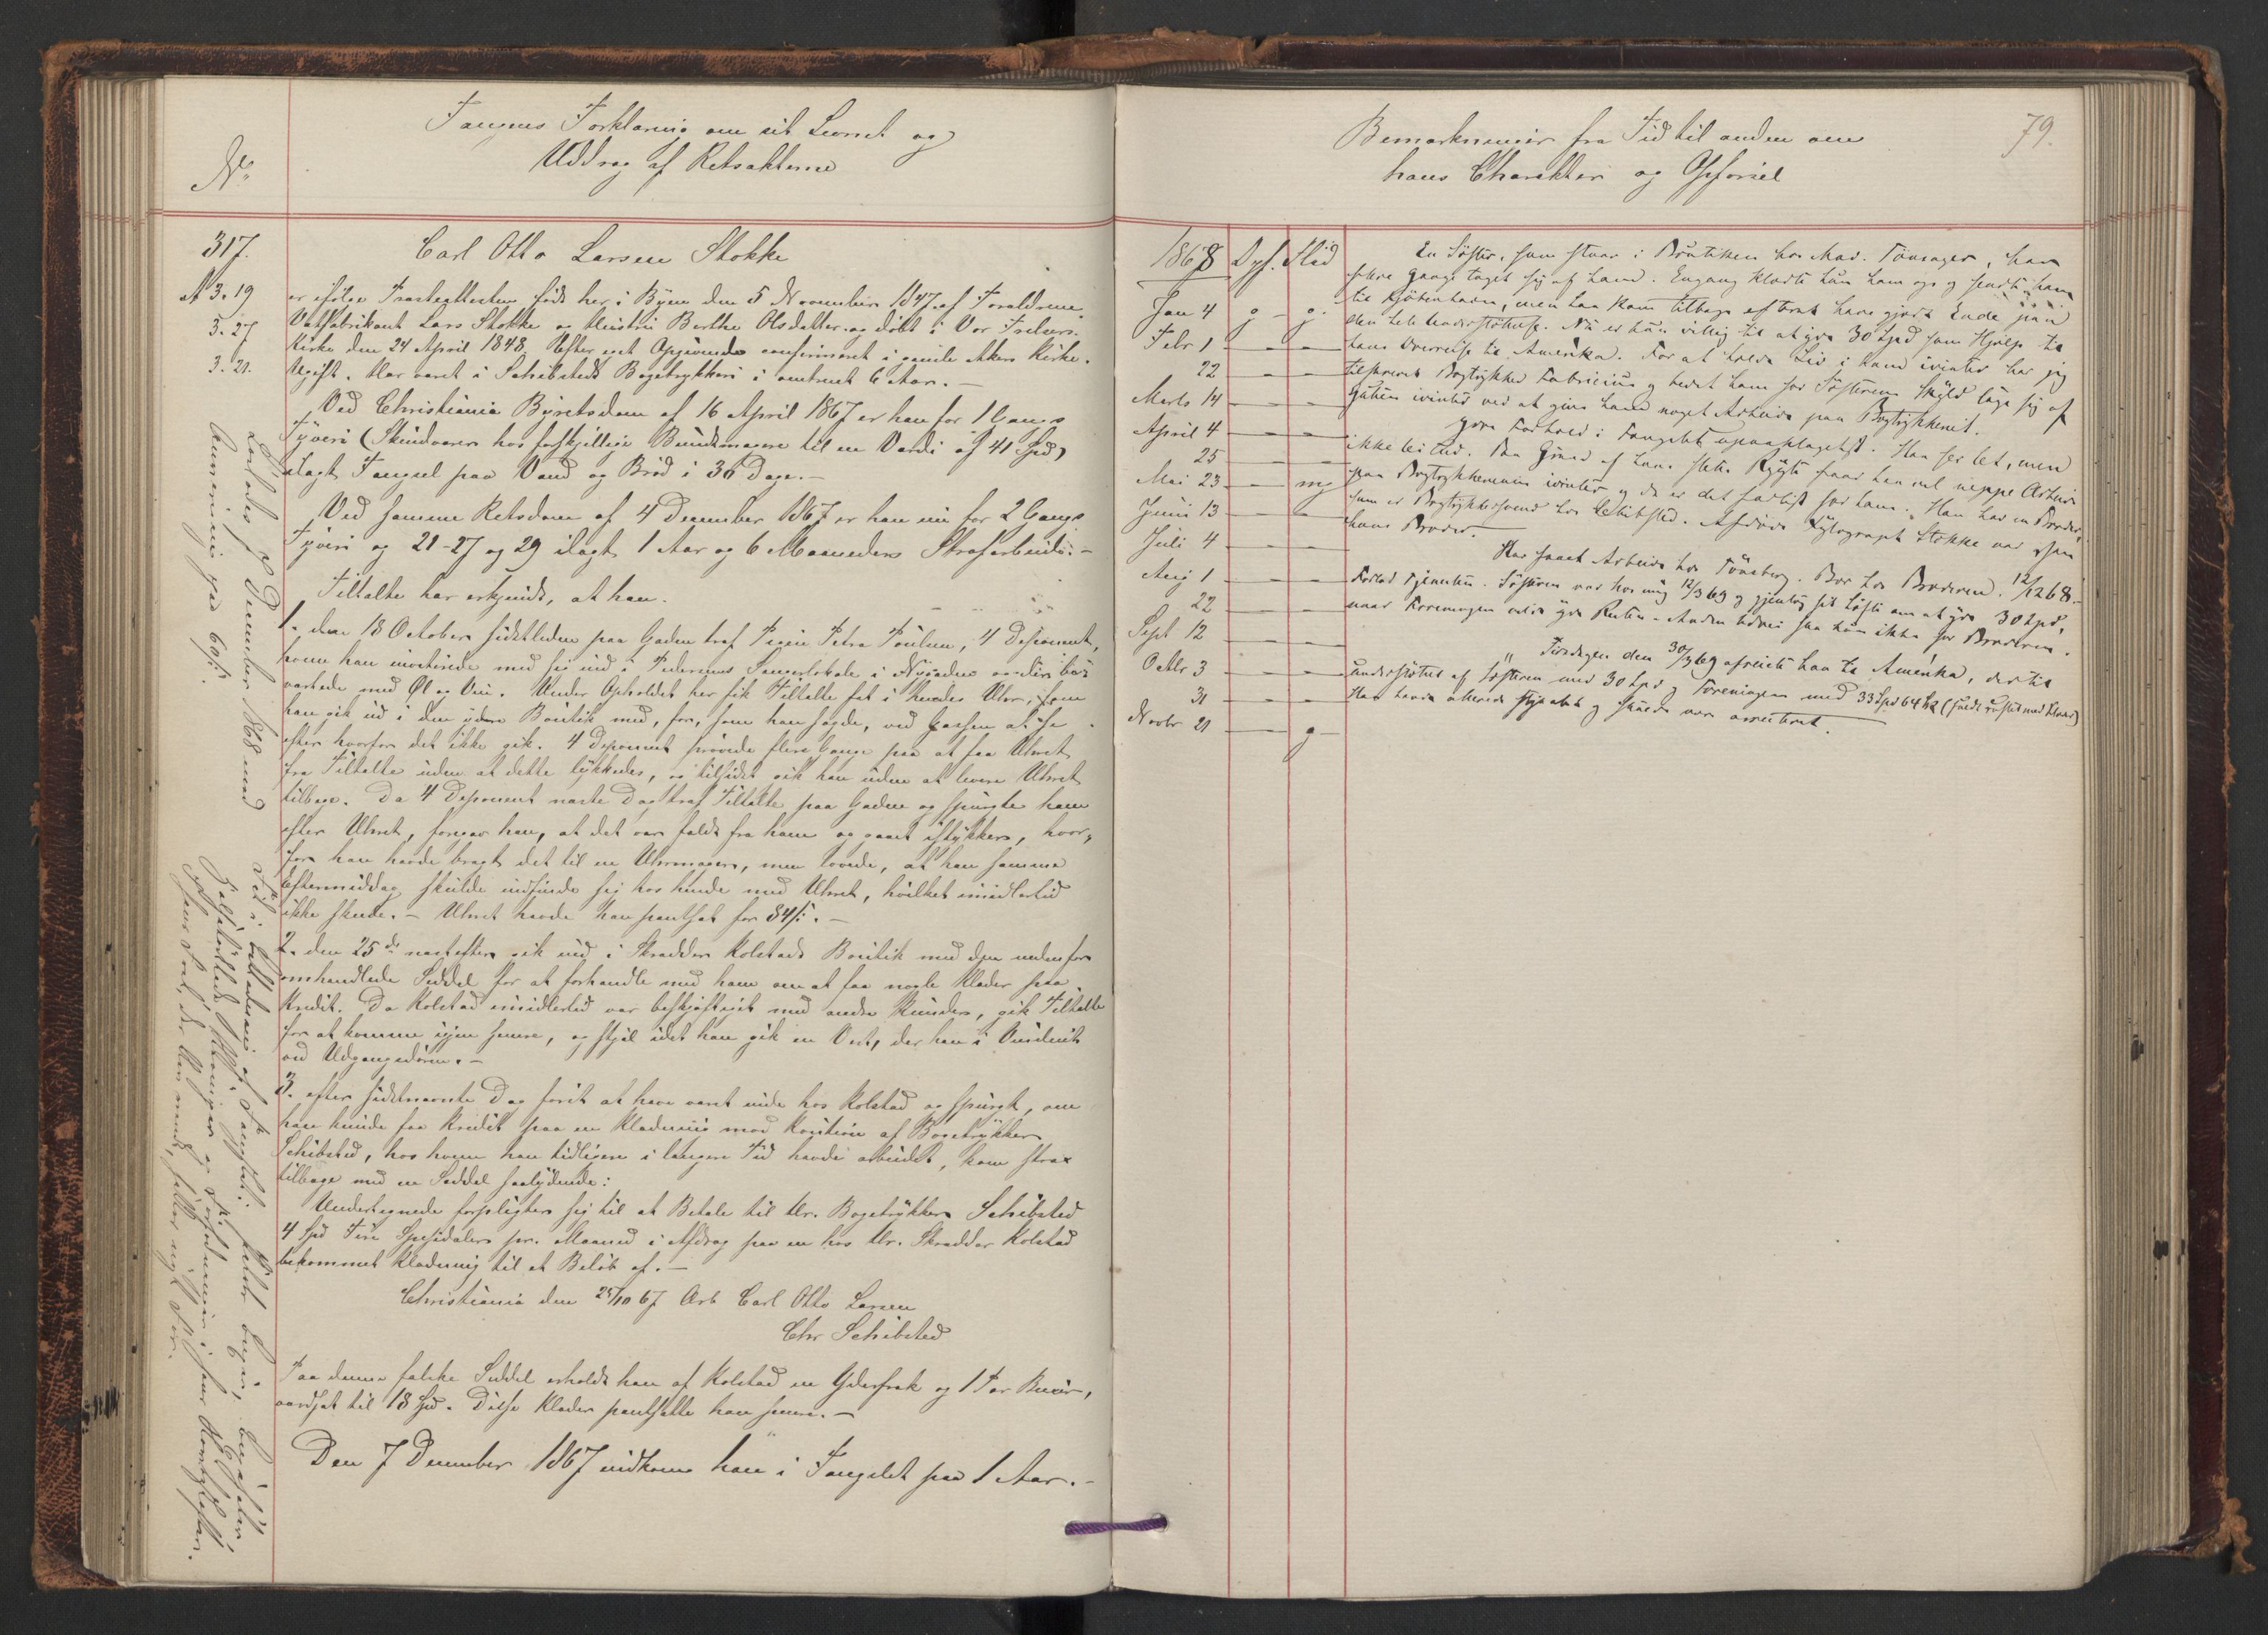 Fangens Forklaring om sit Levnet og
Uddrag af Retsakterne
No
317.
A 3. 19
3. 27
3. 21.
Carl Otto Larsen Stokke
er ifølge Præsteattesten født her i Byen den 5 November 1847 af Forældrene
Vatfabrikant Lars Stokke og Hustru Berthe Olsdatter og døbt i Vor Frelsers
Kirke den 24 April 1848. Efter eget Opgivende confirmeret i gamle Akers Kirke.
Ugift. Har været i Schibsteds Bogtrykkeri i omtrent 6 Aar. –
Ved Christiania Byretsdom af 16 April 1867 er han for 1 Gangs
Tyveri (Skindvarer hos forskjellige Bundtmagere til en Værdi af 41 Spd)
ilagt Fængsel paa Vand og Brød i 30 Dage. –
Ved samme Retsdom af 4 December 1867 er han nu for 2 Gangs
Tyveri og 21-27 og 29 ilagt 1 Aar og 6 Maaneders Strafarbeide. –
Tiltalte har erkjendt, at han
1. den 18 October sidstleden paa Gaden traf Pigen Petra Poulsen, 4 Deponent,
hvem han inviterede med sig ind i Pedersens Sangerlokale i og der be-
værtede med Øl og Vin. Under Opholdet her fik Tiltalte fat i hendes Uhr, som
han gik ud i den ydre Boutik med, for, som han sagde, ved Gassen at se
efter hvorfor det ikke gik. 4 Deponent prøvede flere Gange paa at faa Uhret
fra Tiltalte uden at dette lykkedes, og tilsidst gik han uden at levere Uhret
tilbage. Da 4 Deponent næste Dag traf Tiltalte paa Gaden og spurgte ham
efter Uhret, foregav han, at det var faldt fra ham og gaaet istykker, hvor-
for han havde bragt det til en Uhrmager, men lovede, at han samme
Eftermiddag skulde indfinde sig hos hende med Uhret, hvilket imidlertid
ikke skede. – Uhret havde han pantsat for 84 ſ. –
2. den 25de næstefter gik ind i Skrædder Kolstads Boutik med den nedenfor
omhandlede Seddel for at forhandle med ham om at faa nogle Klæder paa
Kredit. Da Kolstad imidlertid var beskjæftiget med andre Kunder, gik Tiltalte
for at komme igjen senere, og stjal idet han gik en Vest, der hang i Vinduet
ved Udgangsdøren. –
3. efter sidstnævnte Dag først at have været inde hos Kolstad og spurgt, om
han kunde faa Kredit paa en Klædning mod Kaution af Bogtrykker
Schibsted, hos hvem han tidligere i længere Tid havde arbeidet, kom strax
tilbage med en Seddel saalydende:
Undertegnede forpligter sig til at Betale til Hr. Bogtrykker Schibsted
4 Spd Fire Spesidaler pr. Maaned i Afdrag paa en hos Hr. Skrædder Kolstad
bekommet Klædning til et Beløb af. –
Christiania den 25/10 67 Arb Carl Otto Larsen
Chr Schibsted
Paa denne falske Seddel erholdt han af Kolstad en Yderfrak og 1 Par Buxer,
værdsat til 18 Spd. Disse Klæder pantsatte han senere. –
Den 7 December 1867 indkom han i Fængslet paa 1 Aar. –
Løslades 7 December 1868 med
Anvisning paa 60 ſ.
Bemærkninger fra Tid til anden om
hans Charakter og Opførsel
79.
1868 Opf. Flid
Jan 4 g – g.
Febr 1
22
Marts 14
April 4
25
Mai 23 mg
Juni 13
Juli 4
Aug 1
22
Sept 12
Octbr 3
31
Novbr 21 g
En Søster, som staar i Boutiken hos Mad. Tønsager, har
flere Gange taget sig af ham. Engang klædte hun ham op og sendte ham
til Kjøbenhavn, men han kom tilbage efterat have gjort Ende paa
den hele Understøttelse. Nu er hun villig til at yde 30 Spd som Hjælp til
hans Overreise til Amerika. For at holde Liv i ham ivinter har jeg
tilskrevet Bogtrykker Fabricius og bedet ham for Søsterens Skyld tage sig af
Gutten ivinter ved at give ham noget Arbeide paa Bogtrykkeriet.
Hans Forhold i Fængslet upaaklageligt. Han ser let, men
ikke lei ud. Paa Grund af hans slette Rygte faar han vel neppe Arbeide
paa Bogtrykkerierne ivinter og da er det farligt for ham. Han har en Broder,
som er Bogtrykkersvend hos Schibsted. Afdøde Xylograph Stokke var og
hans Broder.
Har faaet Arbeide hos Tønsberg. Bor hos Broderen. 12/12 68.
Forlod Tjenesten. Søsteren var hos mig 12/3 69 og gjentog sit Løfte om at yde 30 Spd,
naar Foreningen vilde yde Resten. Anden Udvei saa hun ikke for Broderen.
Tirsdagen den 30/3 69 afreiste han til Amerika, dertil
understøttet af Søsteren med 30 Spd og Foreningen med 33 Spd 64 ſ
Han havde allerede stjaalet og skulde være arresteret.